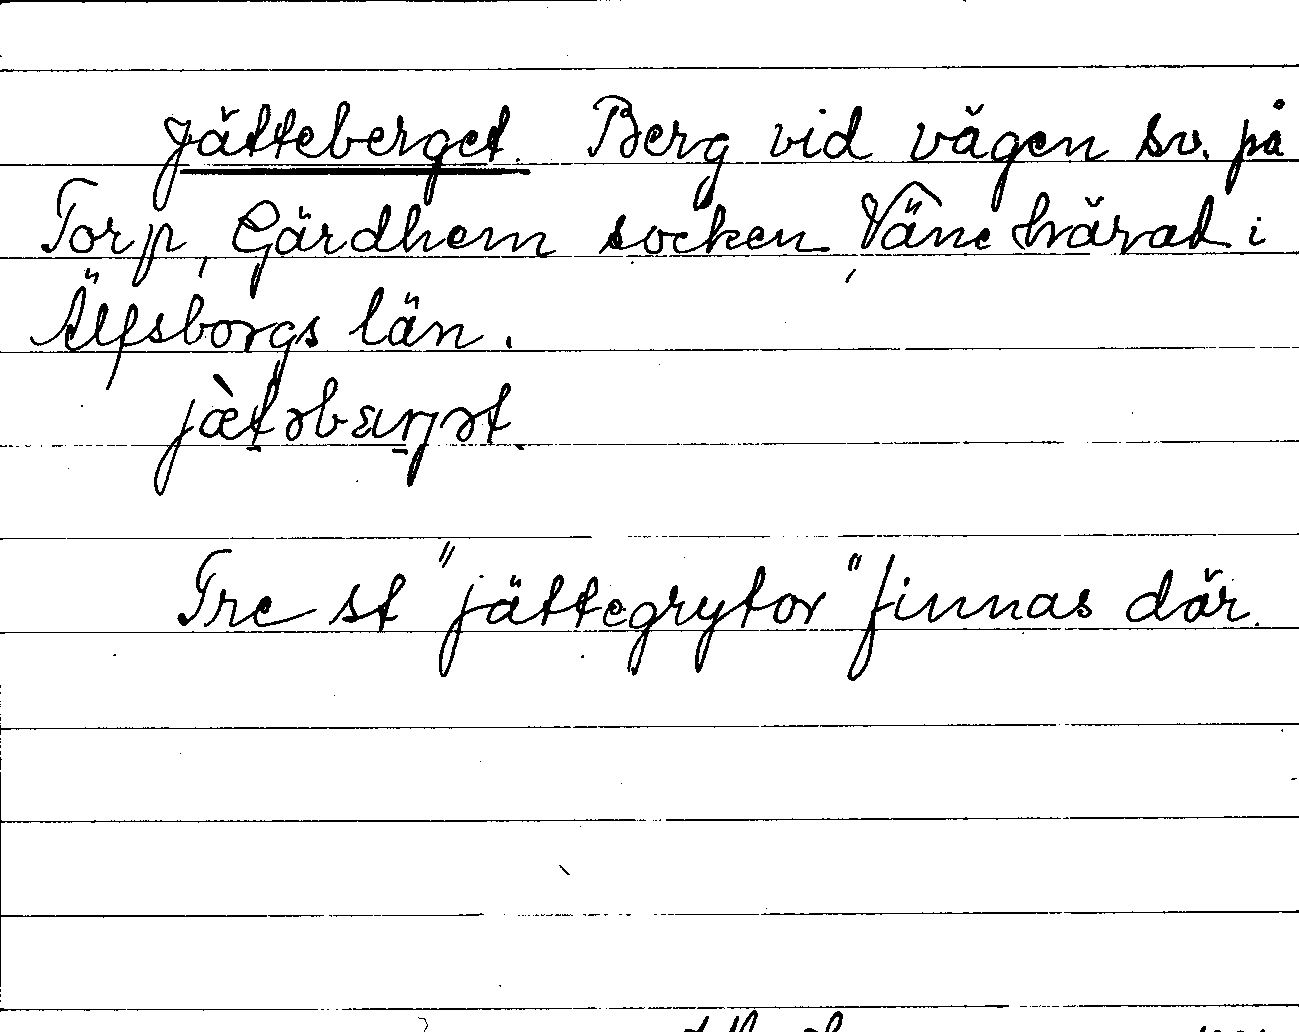 Jätteberget. Berg vid vägen sv. på
Torp, Gärdhem socken, Väne härad i
Älfsborgs län.
Tre st "jättegrytor" finnas där.